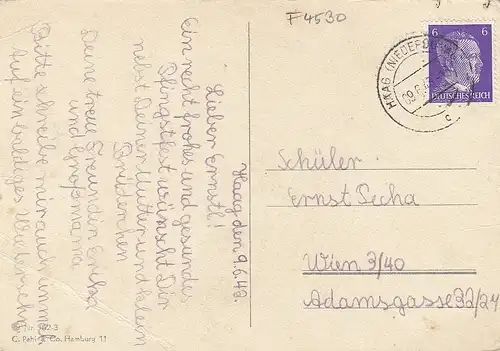 F 4530
6 6
DEUTSCHES REICH
HAAG (NIEDERDONAU)
c
Haag den 9.6.43
Lieber Ernstl!
Ein recht frohes und gesundes
Pfingstfest wünscht Dir
nebst Deiner Mutter und klein
Brüderchen
Deine treue Freundin Erika
und Großmama
Bitte schreibe mir auch immer
Auf ein baldiges Wiedersehn
Schüler
Ernst Pecha
Wien 3/40
Adamsgasse 32/24
Nr. 3
C. Co. Hamburg 11